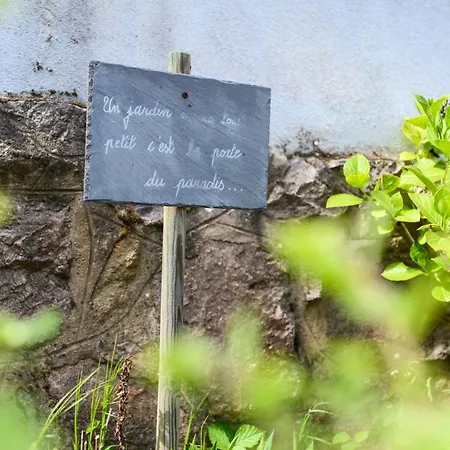 Un jardin tout
petit c'est la porte
du paradis...